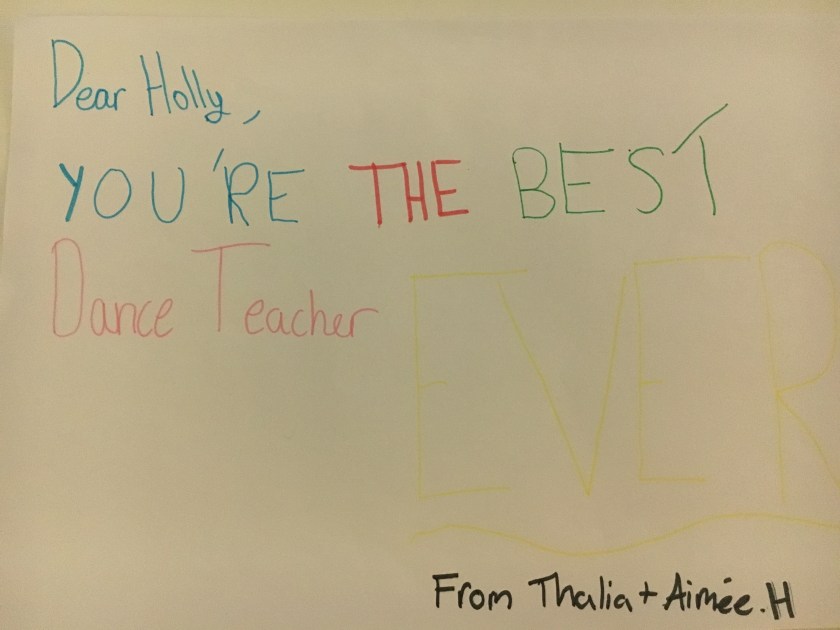 Dear Holly,
YOU'RE THE BEST
Dance Teacher
EVER
From Thalia + Aimée.H